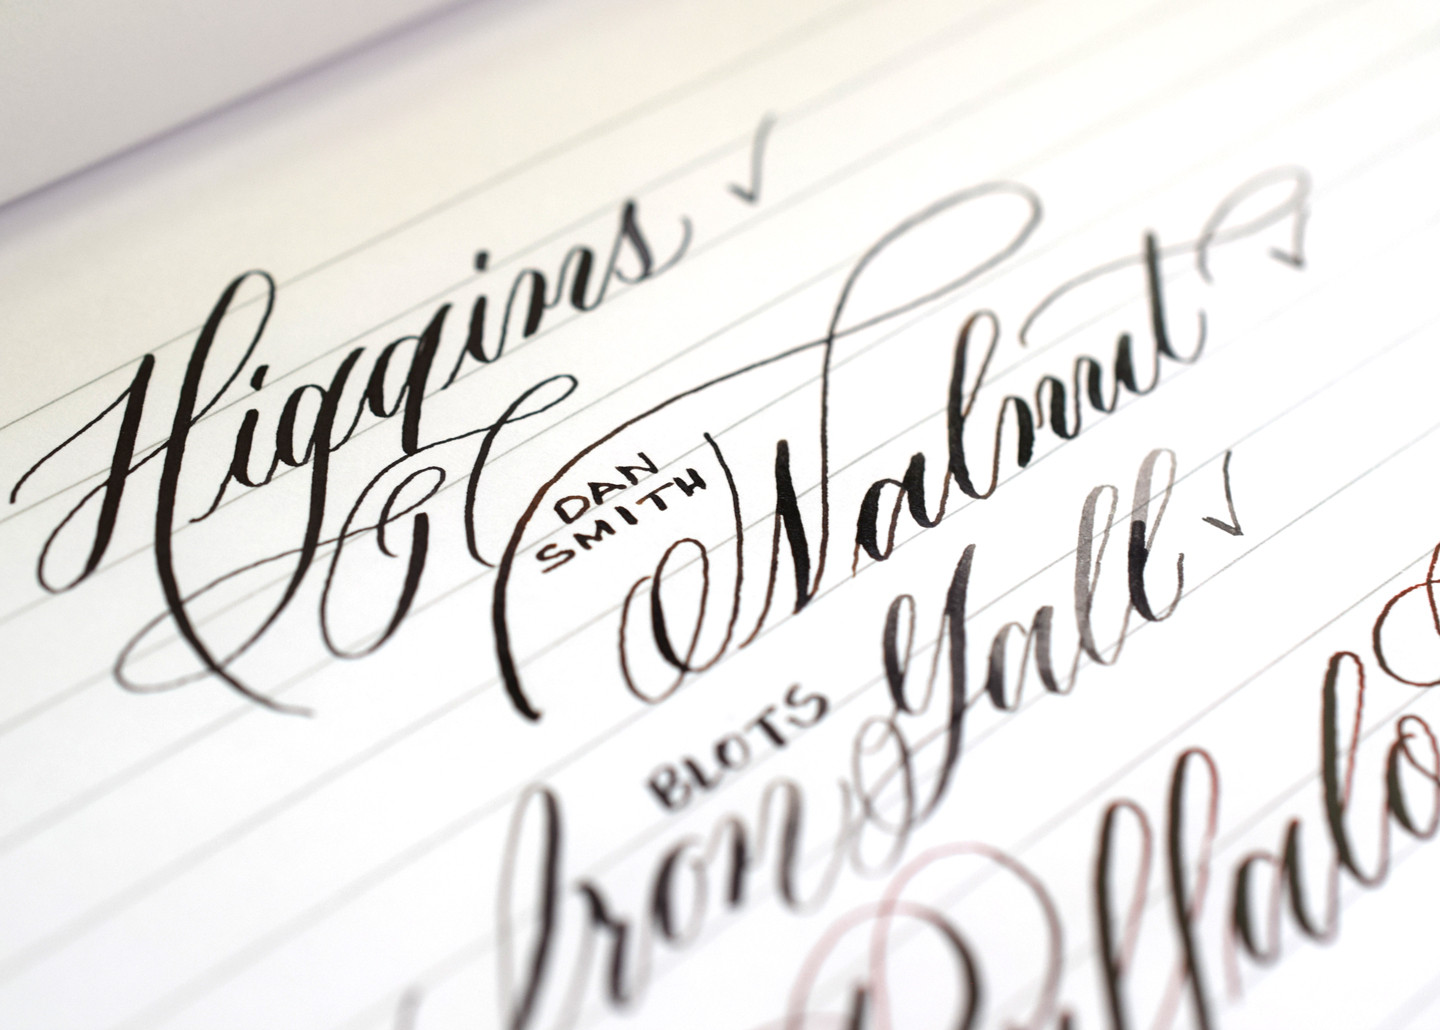 Higgins ✓
E
DAN
SMITH
Walnut ✓
BLOTS
Iron Gall ✓
Buffalo